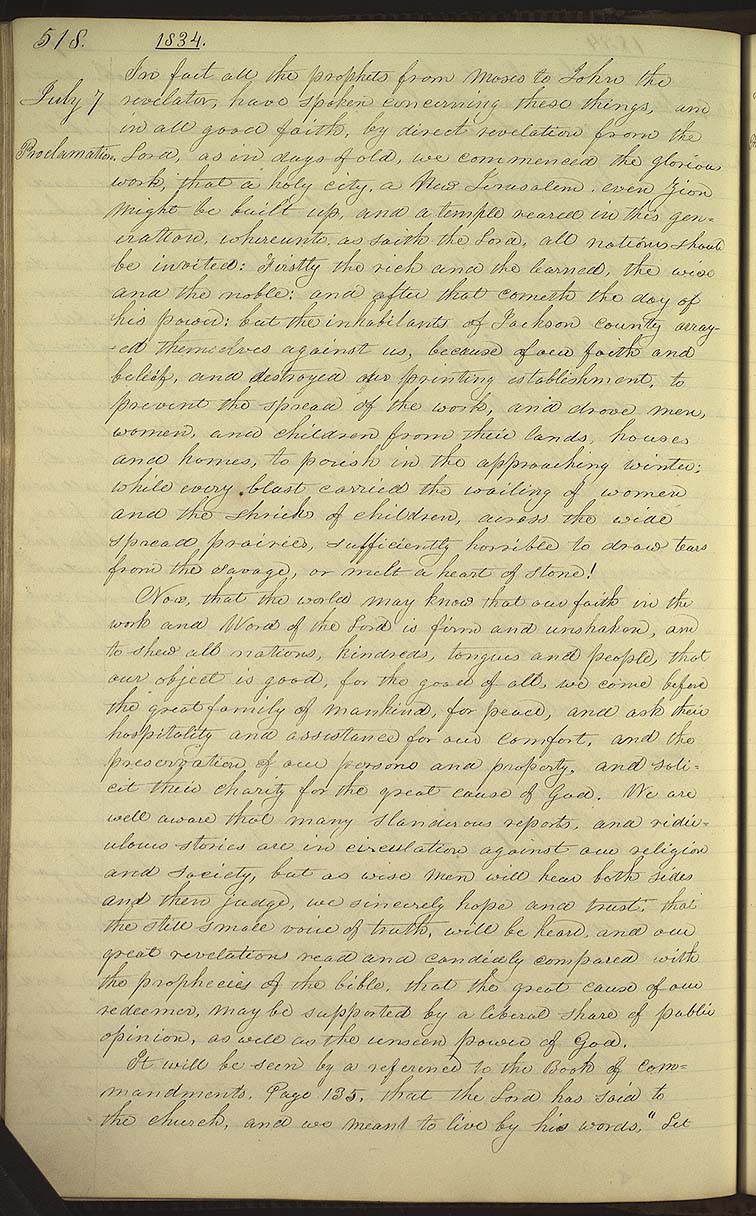 518. 1834.
In fact all the prophets from Moses to John the
July 7 revelator, have spoken concerning these things, and
in all good faith, by direct revelation from the
Proclamation. Lord, as in days of old, we commenced the glorious
work, that a holy city, a New Jerusalem, even Zion
might be built up, and a temple reared in this gen=
eration, whereunto, as saith the Lord, all nations should
be invited: Firstly the rich and the learned, the wise
and the noble: and after that cometh the day of
his power: but the inhabitants of Jackson county array-
-ed themselves against us, because of our faith and
belief, and destroyed our printing establishment, to
prevent the spread of the work, and drove men,
women, and children from their lands, houses
and homes, to perish in the approaching winter;
while every blast carried the wailing of women
and the shrieks of children, across the wide
spread prairies, sufficiently horrible to draw tears
from the savage, or melt a heart of stone!
Now, that the world may know that our faith in the
work and Word of the Lord is firm and unshaken, and
to shew all nations, kindreds, tongues and people, that
our object is good, for the good of all, we come before
the great family of mankind, for peace, and ask their
hospitality and assistance for our comfort, and the
preservation of our persons and property, and soli=
cit their charity for the great cause of God. We are
well aware that many slanderous reports, and ridic=
ulous stories are in circulation against our religion
and society, but as wise men will hear both sides
and then judge, we sincerely hope and trust, that
the still small voice of truth, will be heard, and our
great revelations read and candidly compared with
the prophecies of the bible, that the great cause of our
redeemer, may be supported by a liberal share of public
opinion, as well as the unseen power of God.
It will be seen by a reference to the Book of Com=
mandments. Page 135, that the Lord has said to
the church, and we meant to live by his words, "Let